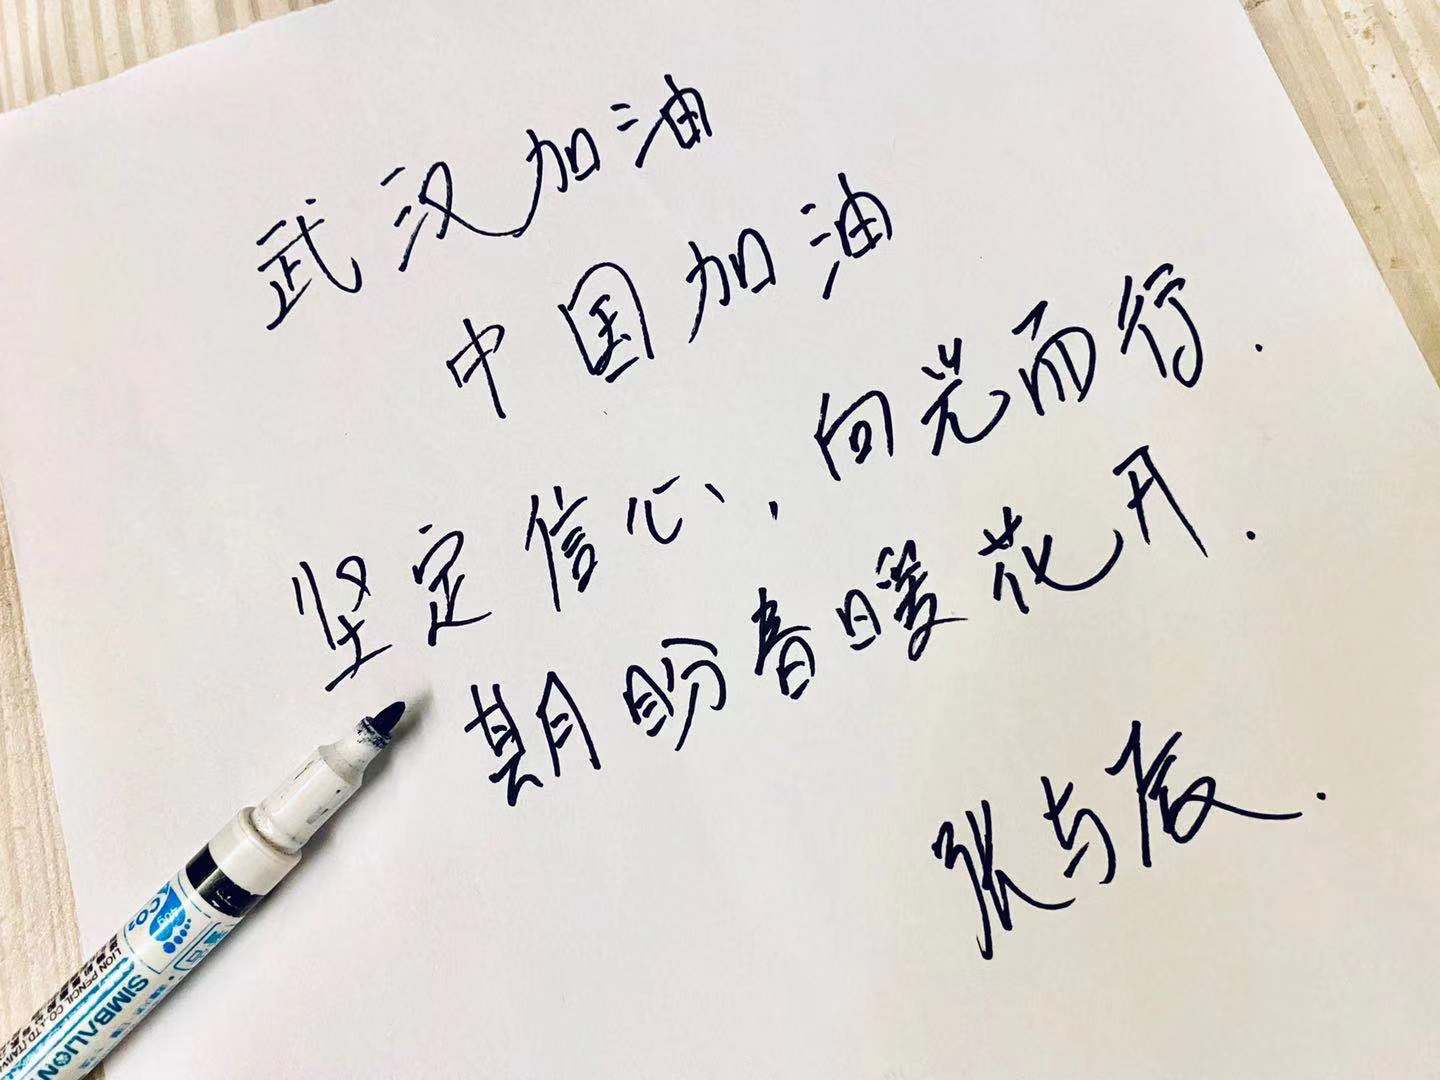 武汉加油
中国加油
坚定信心,向光而行.
期盼春暖花开.
张与辰.
CO2
SIMBALION
LION PENCIL CO.,LTD.(TAIW